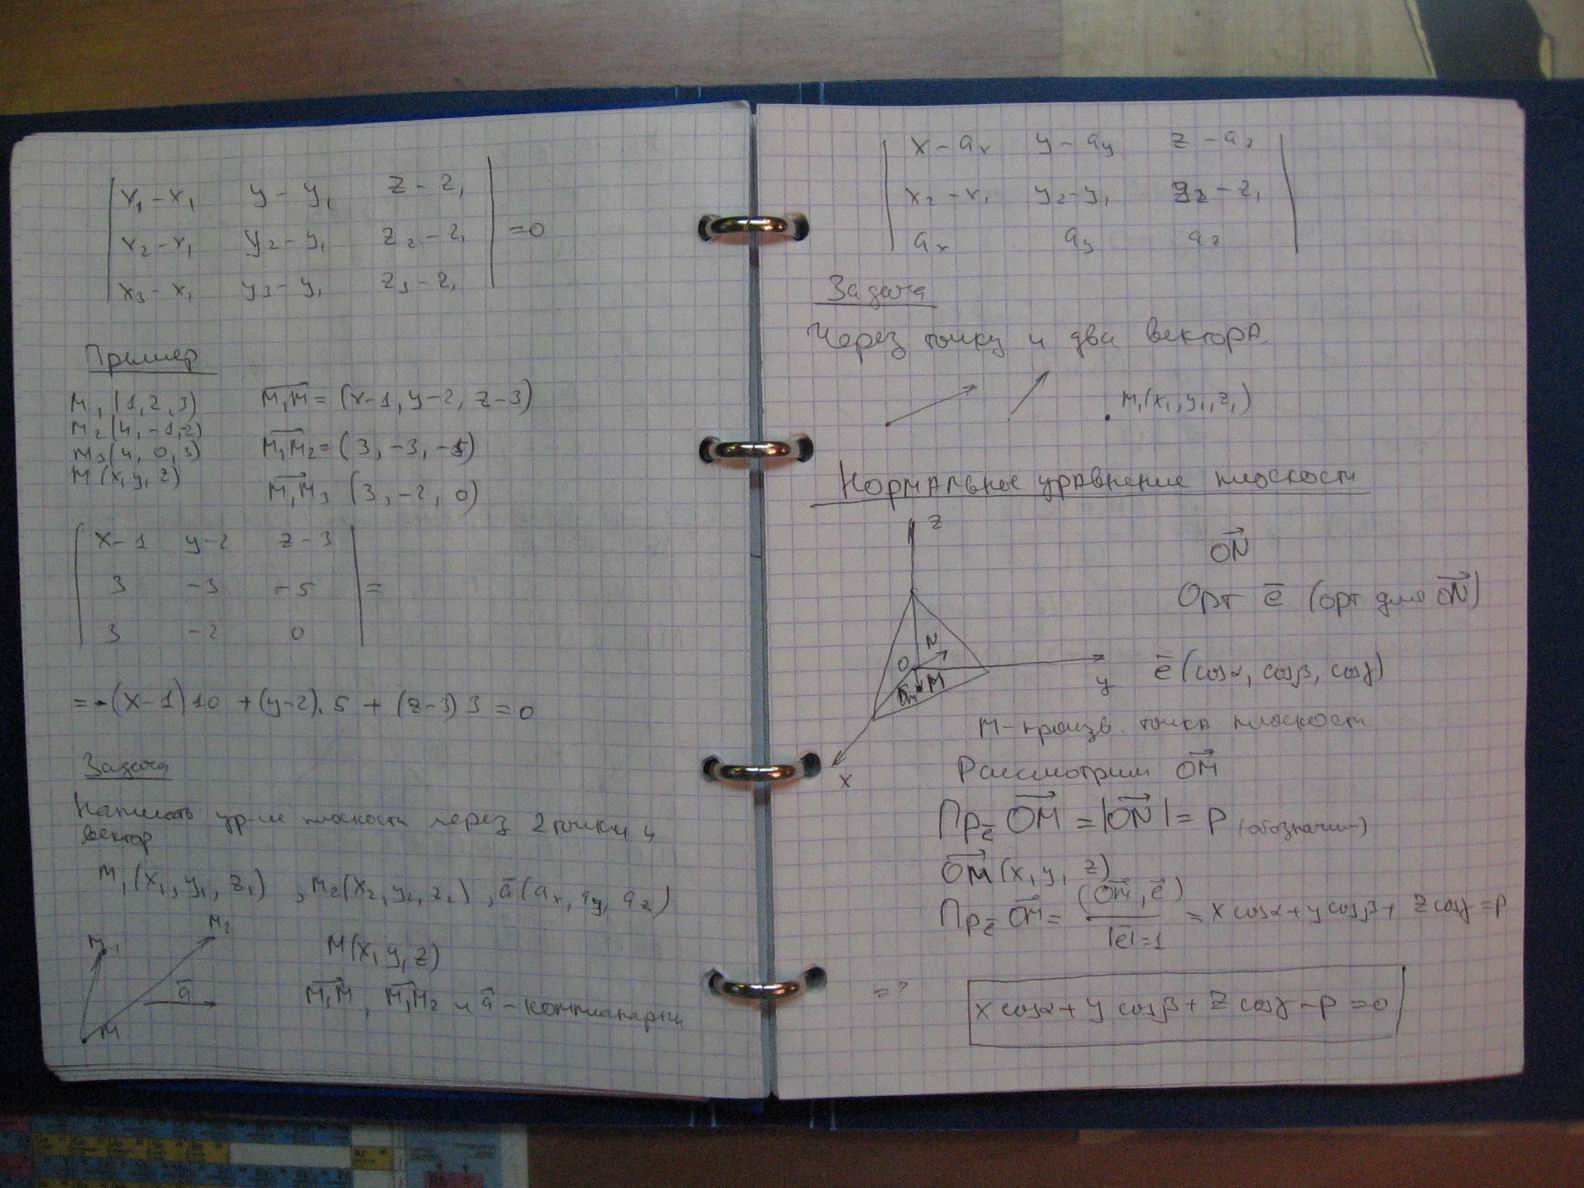 x₁ - x₁ y - y₁ z - z₁
x₂ - x₁ y₂ - y₁ z₂ - z₁ = 0
x₃ - x₁ y₃ - y₁ z₃ - z₁
Пример
M₁ (1, 2, 3) M₁M = (x-1, y-2, z-3)
M₂ (4, -1, 2) M₁M₂ = (3, -3, -5)
M₃ (4, 0, 3) M₁M₃ (3, -2, 0)
M (x, y, z)
x-1 y-2 z-3
3 -3 -5 =
3 -2 0
= -(x-1)10 + (y-2).5 + (z-3)3 = 0
Задача
Написать ур-ие плоскости через 2 точки и
вектор
M₁(x₁, y₁, z₁), M₂(x₂, y₂, z₂), a̅(aₓ, a_y, a_z)
M₁ M₂
M(x, y, z)
a̅
M₁M, M₁M₂ и a̅ - компланарны
M
x - aₓ y - a_y z - a_z
x₂ - x₁ y₂ - y₁ z₂ - z₁
aₓ a_y a_z
Задача
Через точку и два вектора.
M₁(x₁, y₁, z₁)
Нормальное уравнение плоскости
z
ON
Орт e̅ (орт для ON)
N
O
M
y
e̅ (cosα, cosβ, cosγ)
M - произв. точка плоскости
x
Рассмотрим OM
Пр_e̅ OM = |ON| = P (обозначим)
OM (x, y, z)
Пр_e̅ OM = (OM, e̅) / |e̅|=1 = x cosα + y cosβ + z cosγ = P
=> x cosα + y cosβ + z cosγ - P = 0